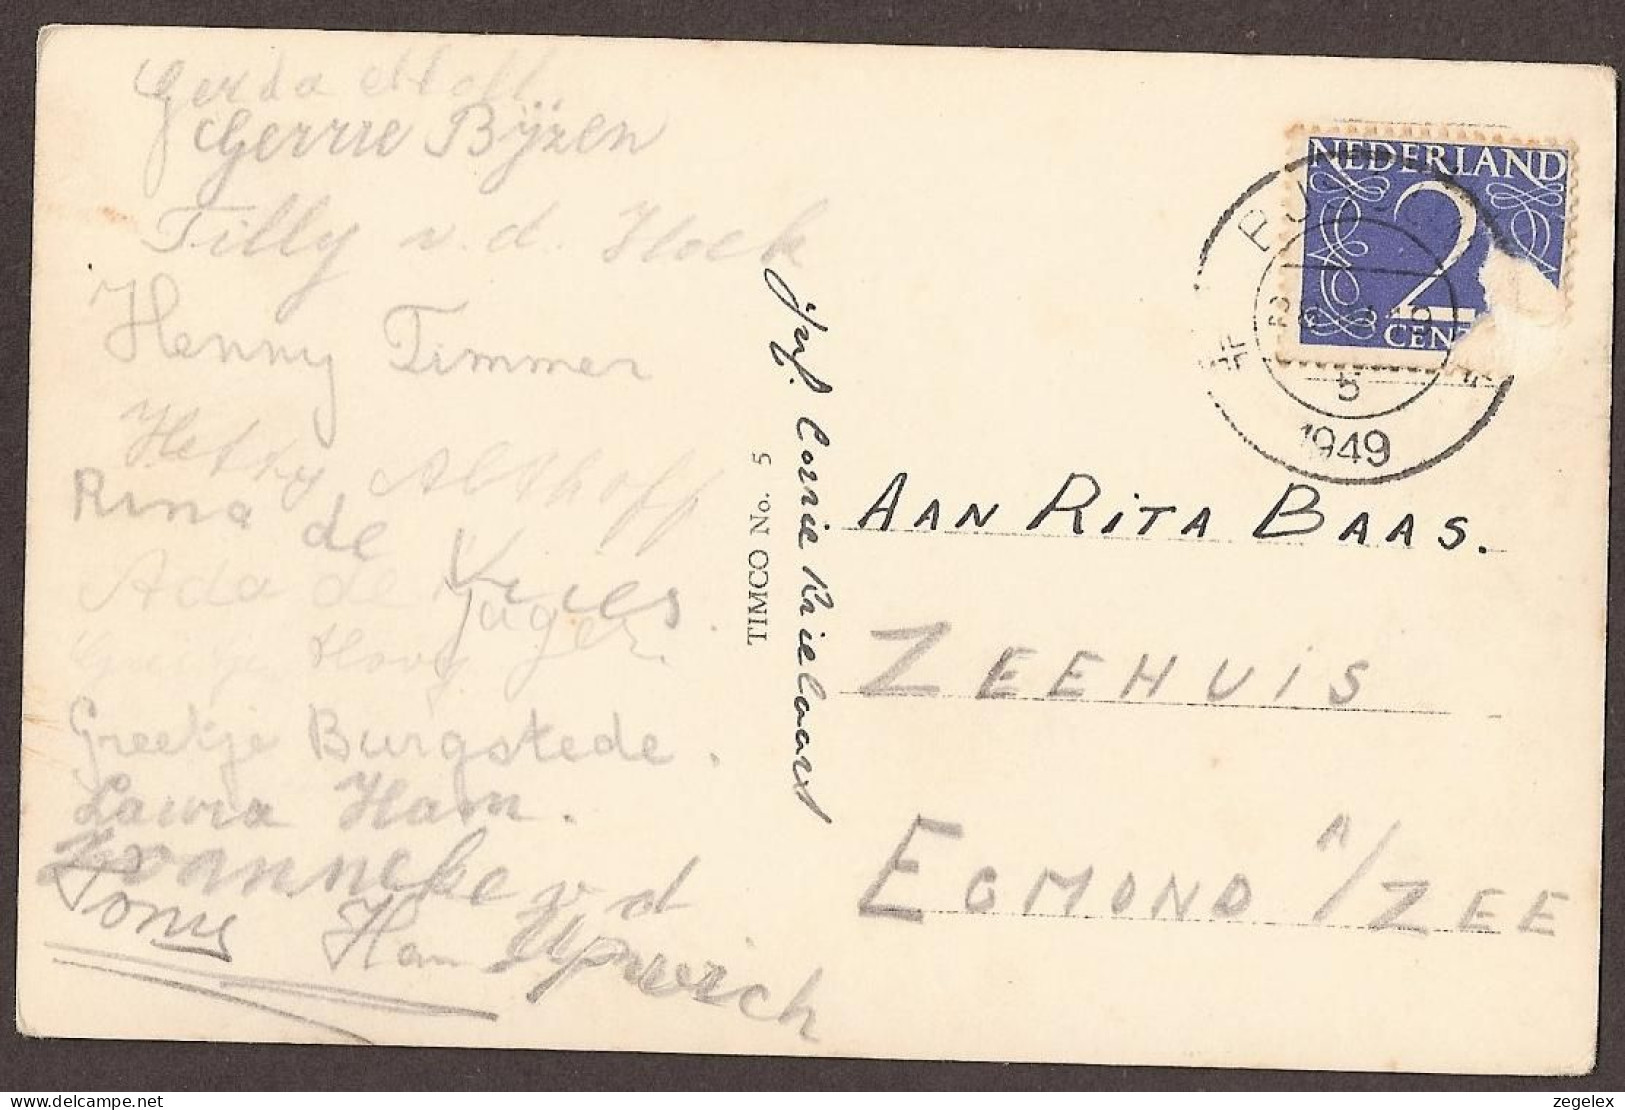 Gerda Moll.
Gerrie Bijzen
Tilly v.d. Hoek
Henny Timmer
Hetty Althoff
Rina de Vries.
Ada de Jager.
Greetje Hoog
Greetje Burgstede.
Laura Ham.
Yvanneke v d
Tony Ham
TIMCO No. 5
Juf. Corrie Rielaart
NEDERLAND
2
CEN
5
1949
AAN RITA BAAS.
ZEEHUIS
EGMOND A/ZEE
zegelex
delcampe.net